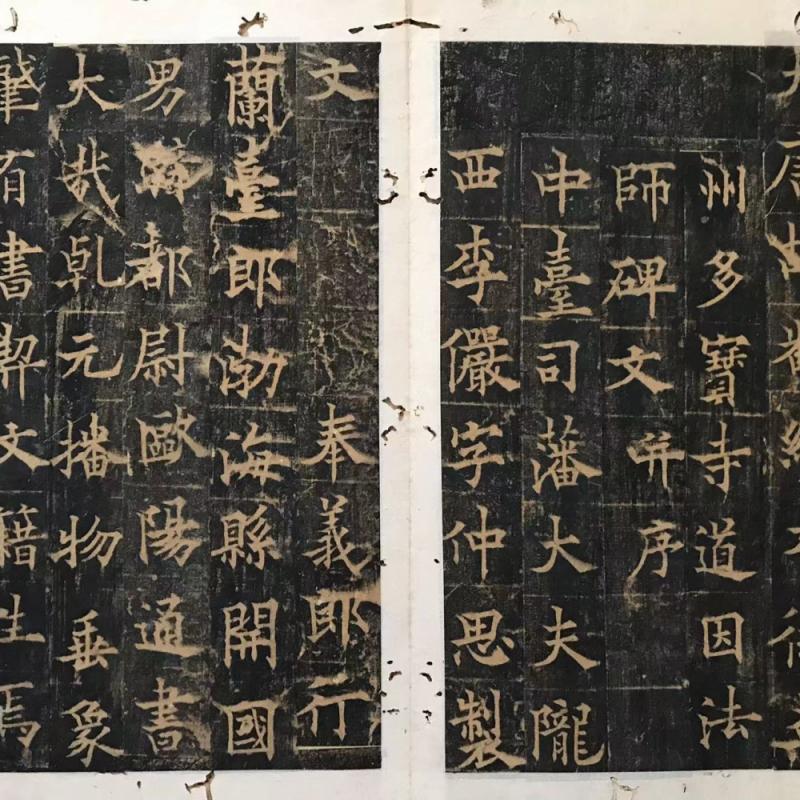 大唐故翻經大德益
州多寶寺道因法
師碑文并序
中臺司藩大夫隴
西李儼字仲思製
文 奉義郎行
蘭臺郎渤海縣開國
男騎都尉歐陽通書
大哉乹元播物垂象
肇有書契文籍生焉